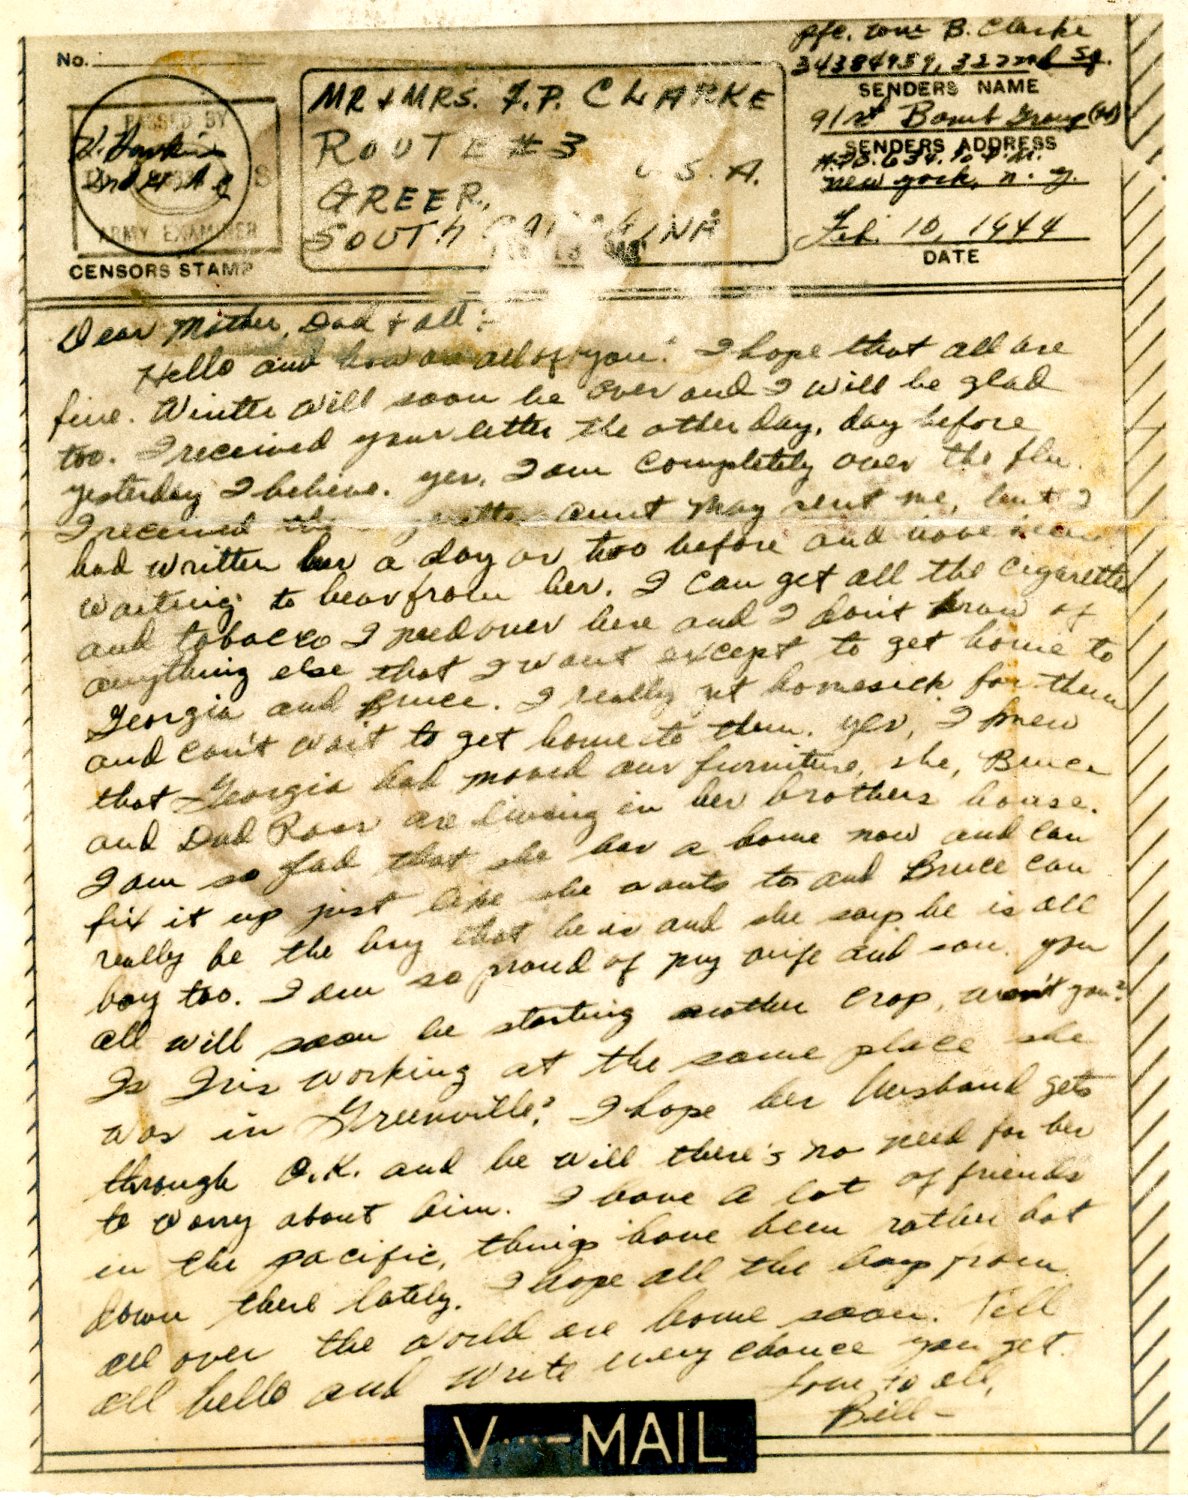 No.
PASSED BY
ARMY EXAMINER
CENSORS STAMP
MR + MRS. F. P. CLARKE
ROUTE #3
U.S.A.
GREER,
SOUTH CAROLINA
Pfc. B. Clarke
34384959, 322nd Sq.
SENDERS NAME
91st Bomb Group (H)
SENDERS ADDRESS
A.P.O. 634, % P.M.
New York, N. Y.
Feb 10, 1944
DATE
Dear Mother, Dad + all:-
Hello and how are all of you? I hope that all are
fine. Winter will soon be over and I will be glad
too. I received your letter the other day, day before
yesterday I believe. Yes, I am completely over the flu.
I received the letter aunt May sent me, but I
had written her a day or two before and have been
waiting to hear from her. I can get all the cigarettes
and tobacco I need over here and I don't know of
anything else that I want except to get home to
Georgia and Bruce. I really get homesick for them
and can't wait to get home to them. Yes, I knew
that Georgia had moved our furniture, she, Bruce
and Dad Ross are living in her brothers house.
I am so glad that she has a home now and can
fix it up just like she wants to and Bruce can
really be the boy that he is and she says he is all
boy too. I am so proud of my wife and son. You
all will soon be starting another crop, won't you?
Is Iris working at the same place she
was in Greenville? I hope her husband gets
through O.K. and he will there's no need for her
to worry about him. I have a lot of friends
in the pacific, things have been rather hot
down there lately. I hope all the boys from
all over the world are home soon. Tell
all hello and write every chance you get.
Love to all,
Bill-
V···-MAIL